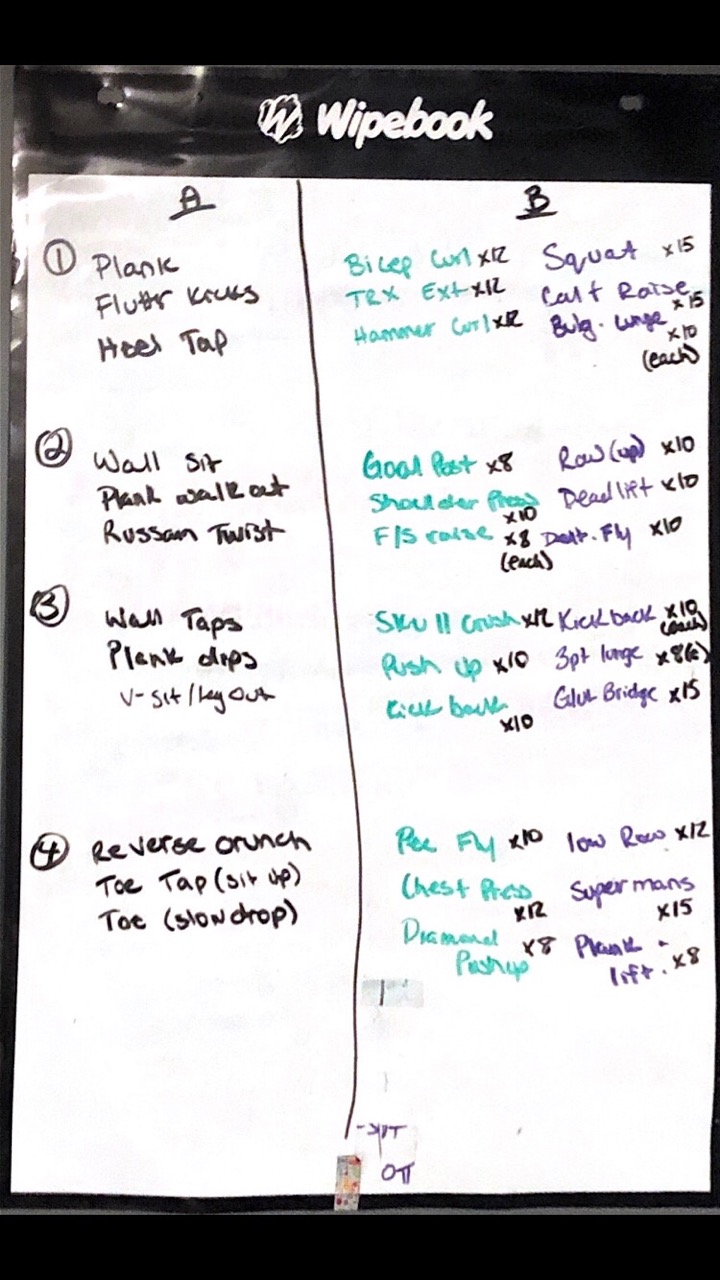 Wipebook
A
B
① Plank
Fluttr Kicks
Heel Tap
Bicep Curl x12
TRX Ext x12
Hammer Curl x12
Squat x15
Calf Raise x15
Bulg. Lunge x10
(each)
② Wall Sit
Plank walk out
Russain Twist
Goal Post x8
Shoulder Press x10
F/S raise x8
(each)
Row (up) x10
Deadlift x10
Delt. Fly x10
③ Wall Taps
Plank dips
V-sit / Lay Out
Skull Crush x12
Push up x10
Kick back x10
Kick back x10
(each)
3pt lunge x8(e)
Glut Bridge x15
④ Reverse Crunch
Toe Tap (sit up)
Toe (slow drop)
Pec Fly x10
Chest Press x12
Diamond x8
Pushup
low Row x12
Supermans x15
Plank -
lift. x8